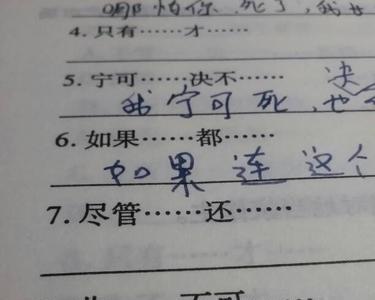 哪怕你死了,我也
4. 只有……才……
5. 宁可……决不…… 决
我宁可死,也
6. 如果……都……
如果连这个
7. 尽管……还……